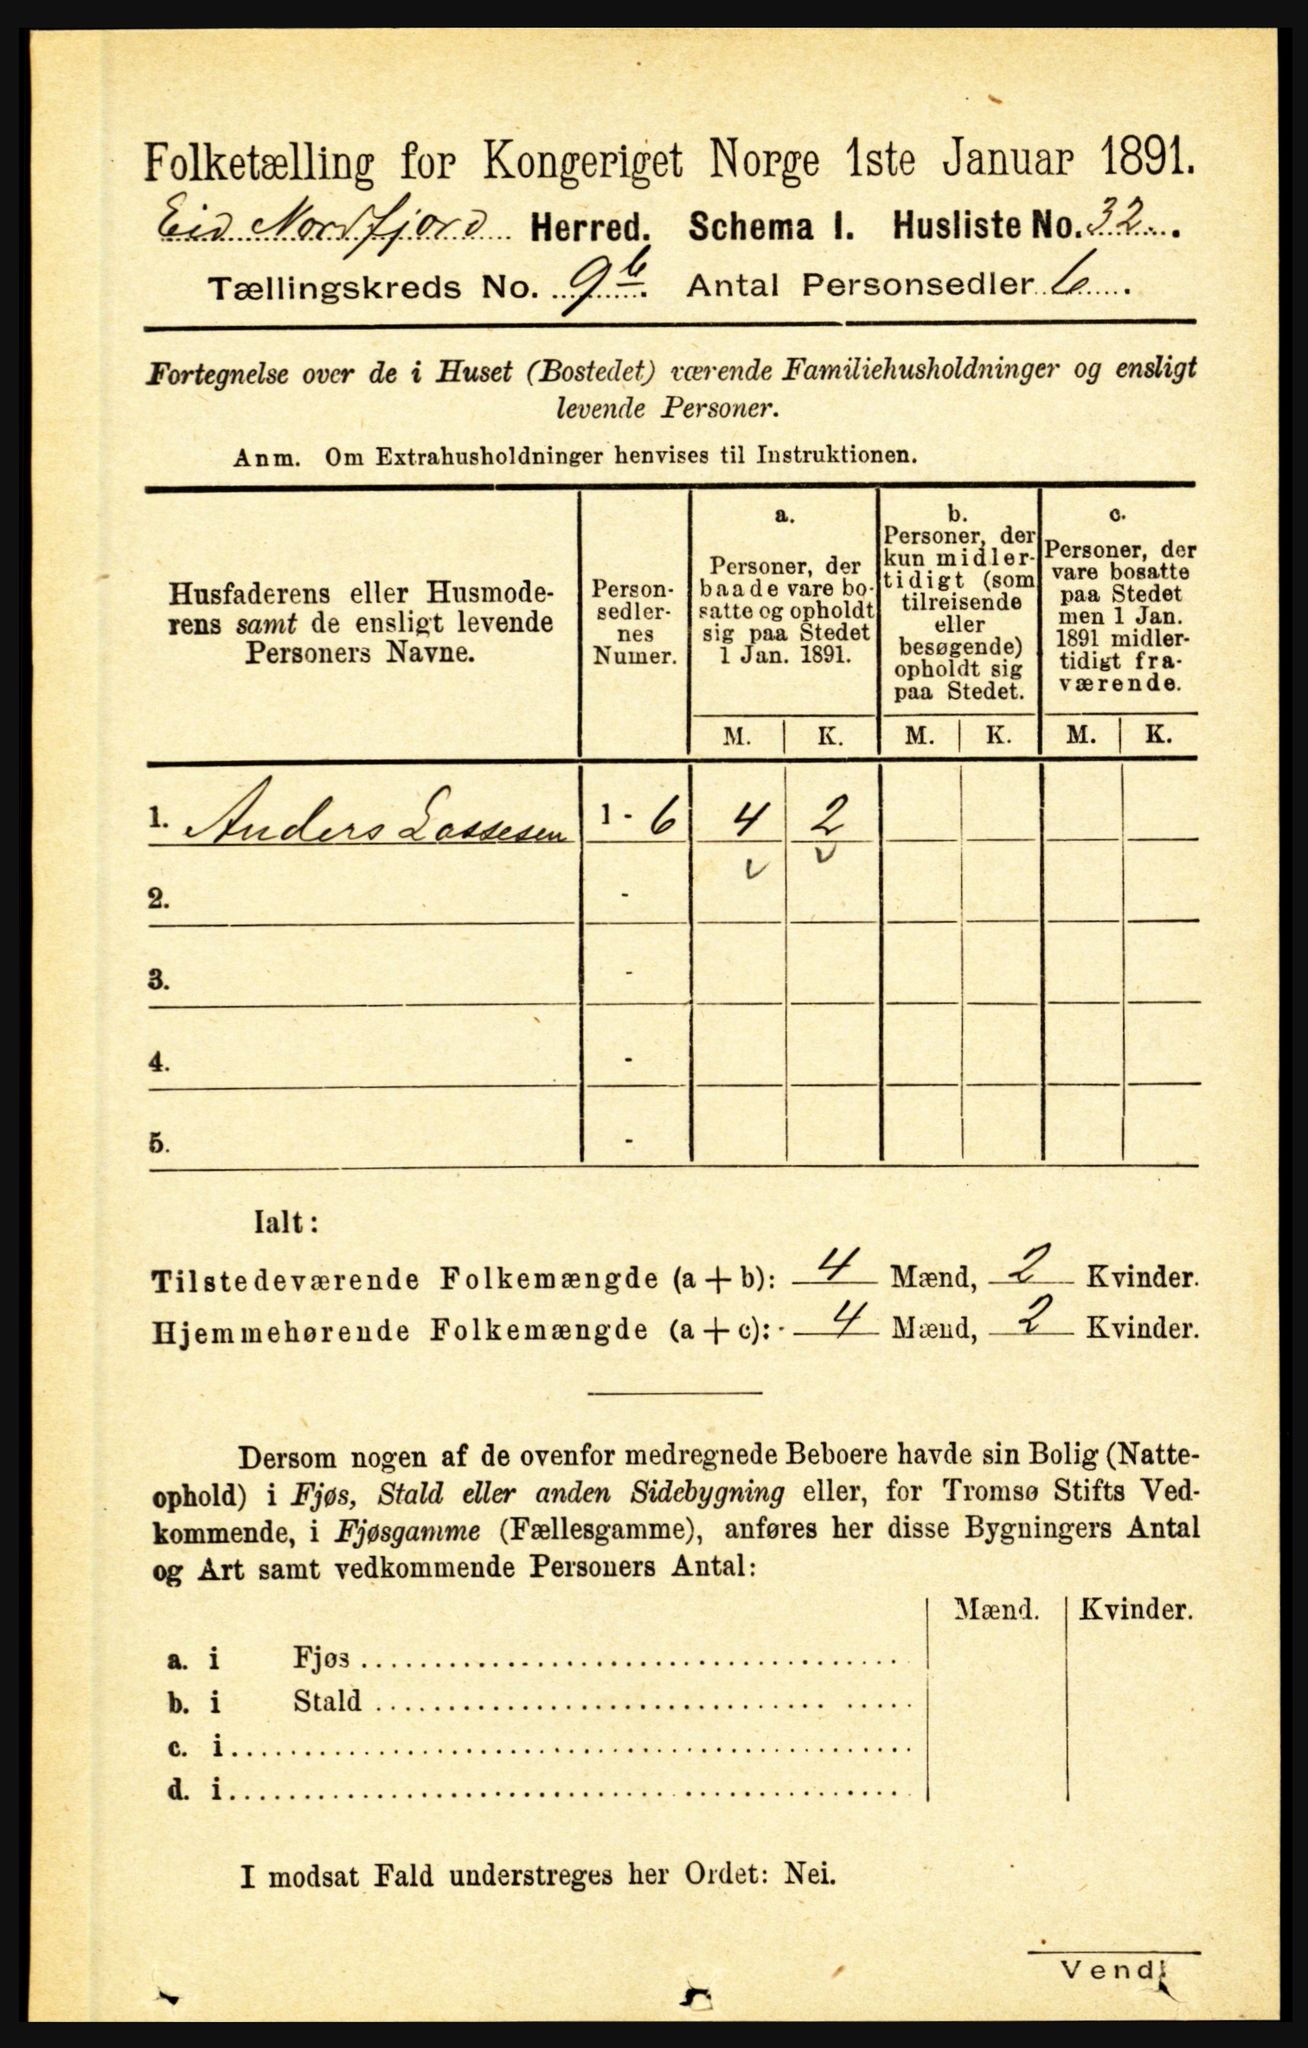 Folketælling for Kongeriget Norge 1ste Januar 1891.
Eid Nordfjord Herred. Schema I. Husliste No. 32.
Tællingskreds No. 9b. Antal Personsedler 6.
Fortegnelse over de i Huset (Bostedet) værende Familiehusholdninger og ensligt
levende Personer.
Anm. Om Extrahusholdninger henvises til Instruktionen.
Husfaderens eller Husmode-
rens samt de ensligt levende
Personers Navne.
Person-
sedler-
nes
Numer.
a.
Personer, der
baade vare bo-
satte og opholdt
sig paa Stedet
1 Jan. 1891.
b.
Personer, der
kun midler-
tidigt (som
tilreisende
eller
besøgende)
opholdt sig
paa Stedet.
c.
Personer, der
vare bosatte
paa Stedet
men 1 Jan.
1891 midler-
tidigt fra-
værende.
M. K. M. K. M. K.
1. Anders Lassesen 1 - 6 4 2
2. -
3. -
4. -
5. -
Ialt:
Tilstedeværende Folkemængde (a + b): 4 Mænd, 2 Kvinder.
Hjemmehørende Folkemængde (a + c): 4 Mænd, 2 Kvinder.
Dersom nogen af de ovenfor medregnede Beboere havde sin Bolig (Natte-
ophold) i Fjøs, Stald eller anden Sidebygning eller, for Tromsø Stifts Ved-
kommende, i Fjøsgamme (Fællesgamme), anføres her disse Bygningers Antal
og Art samt vedkommende Personers Antal:
Mænd. Kvinder.
a. i Fjøs
b. i Stald
c. i
d. i
I modsat Fald understreges her Ordet: Nei.
Vend!